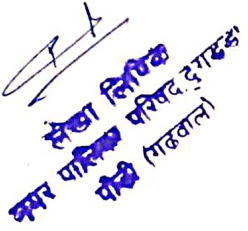 लेखा लिपिक
नगर पालिका परिषद, दुगड्डा
पौड़ी (गढ़वाल)